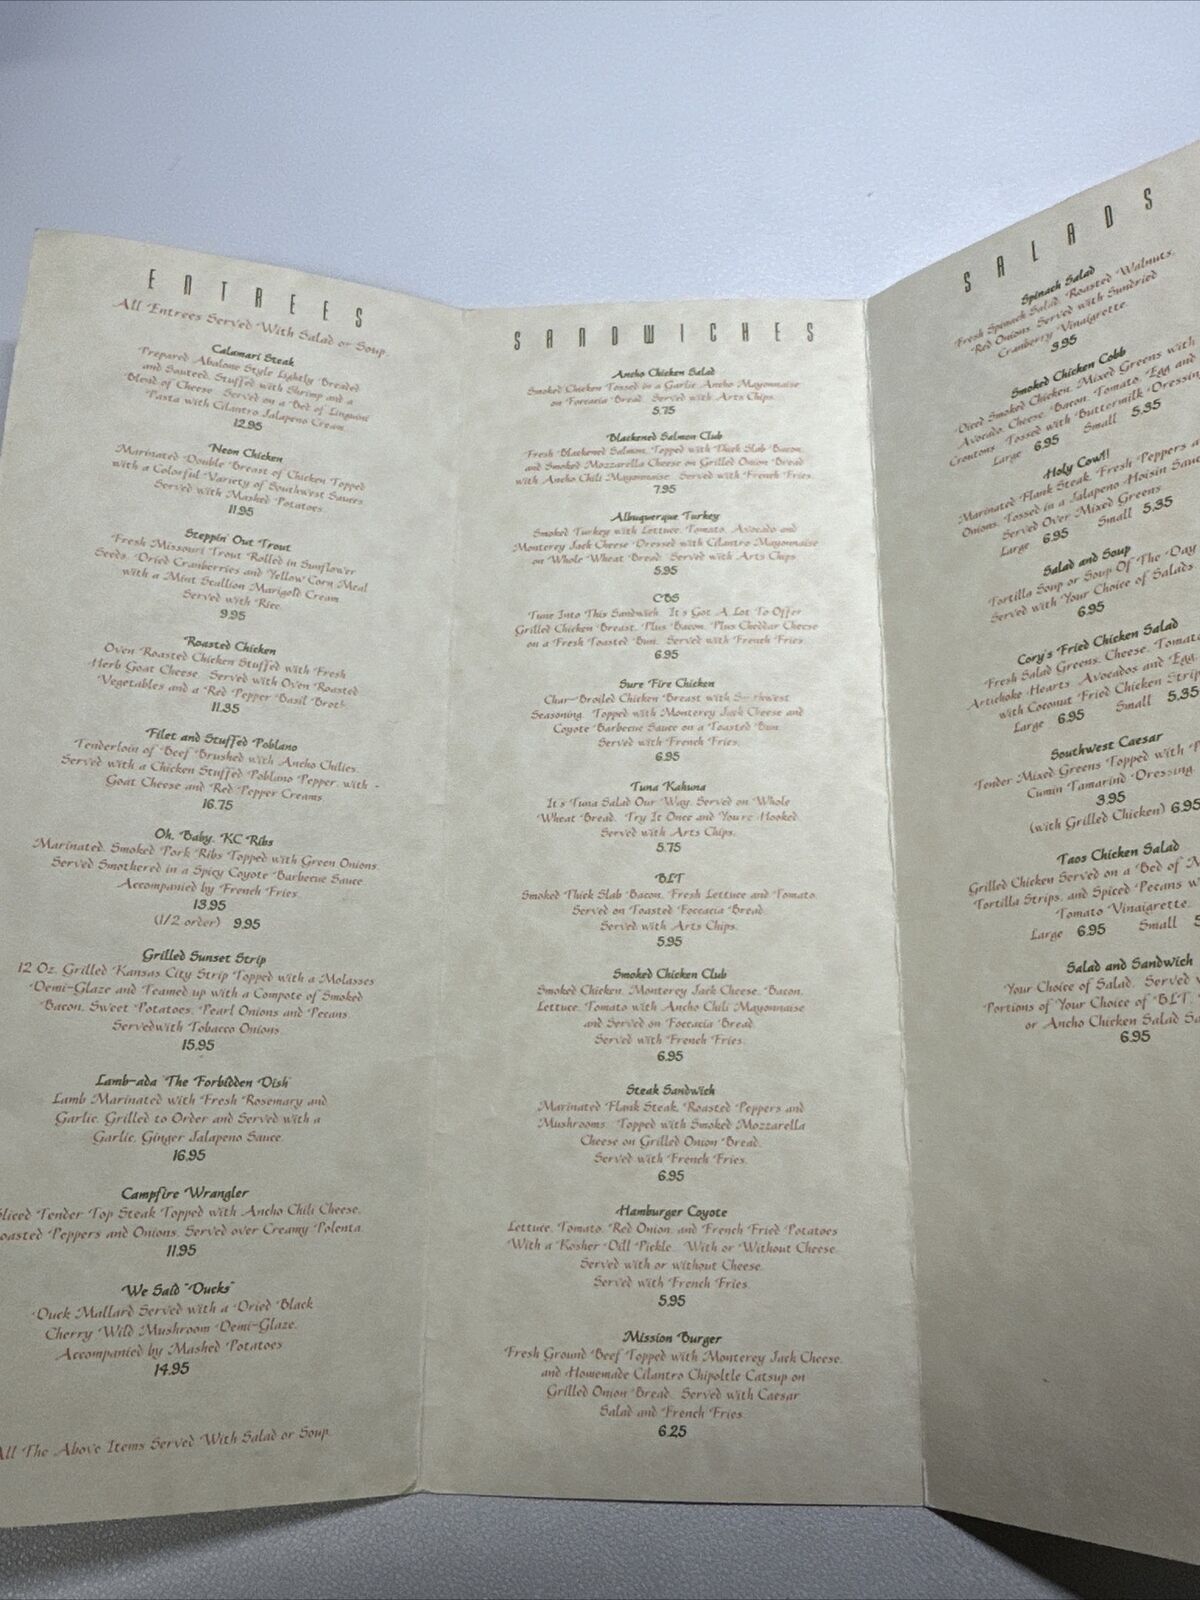 ENTREES
All Entrees Served With Salad or Soup
Calamari Steak
Prepared Abalone Style Lightly Breaded
and Sauteed, Stuffed with Shrimp and a
Blend of Cheese. Served on a Bed of Linguini
Pasta with Cilantro Jalapeno Cream.
12.95
Neon Chicken
Marinated Double Breast of Chicken Topped
with a Colorful Variety of Southwest Sauces
Served with Mashed Potatoes.
11.95
Steppin' Out Trout
Fresh Missouri Trout Rolled in Sunflower
Seeds, Dried Cranberries and Yellow Corn Meal
with a Mint Stallion Marigold Cream
Served with Rice.
9.95
Roasted Chicken
Oven Roasted Chicken Stuffed with Fresh
Herb Goat Cheese. Served with Oven Roasted
Vegetables and a Red Pepper Basil Broth
11.35
Filet and Stuffed Poblano
Tenderloin of Beef Brushed with Ancho Chilies.
Served with a Chicken Stuffed Poblano Pepper, with
Goat Cheese and Red Pepper Creams
16.75
Oh, Baby, KC Ribs
Marinated, Smoked Pork Ribs Topped with Green Onions
Served Smothered in a Spicy Coyote Barbecue Sauce
Accompanied by French Fries.
13.95
(1/2 order) 9.95
Grilled Sunset Strip
12 Oz. Grilled Kansas City Strip Topped with a Molasses
Demi-Glaze and Teamed up with a Compote of Smoked
Bacon, Sweet Potatoes, Pearl Onions and Pecans.
Servedwith Tobacco Onions.
15.95
Lamb-ada "The Forbidden Dish"
Lamb Marinated with Fresh Rosemary and
Garlic, Grilled to Order and Served with a
Garlic, Ginger Jalapeno Sauce.
16.95
Campfire Wrangler
Sliced Tender Top Steak Topped with Ancho Chili Cheese,
Roasted Peppers and Onions. Served over Creamy Polenta.
11.95
We Said "Ducks"
Duck Mallard Served with a Dried Black
Cherry Wild Mushroom Demi-Glaze.
Accompanied by Mashed Potatoes
14.95
All The Above Items Served With Salad or Soup.
SANDWICHES
Ancho Chicken Salad
Smoked Chicken Tossed in a Garlic Ancho Mayonnaise
on Foccacia Bread. Served with Arts Chips.
5.75
Blackened Salmon Club
Fresh Blackened Salmon, Topped with Thick Slab Bacon,
and Smoked Mozzarella Cheese on Grilled Onion Bread
with Ancho Chili Mayonnaise. Served with French Fries.
7.95
Albuquerque Turkey
Smoked Turkey with Lettuce, Tomato, Avocado and
Monterey Jack Cheese Dressed with Cilantro Mayonnaise
on Whole Wheat Bread. Served with Arts Chips.
5.95
CBS
Tune Into This Sandwich. It's Got A Lot To Offer
Grilled Chicken Breast, Plus Bacon, Plus Cheddar Cheese
on a Fresh Toasted Bun. Served with French Fries.
6.95
Sure Fire Chicken
Char-Broiled Chicken Breast with Southwest
Seasoning, Topped with Monterey Jack Cheese and
Coyote Barbecue Sauce on a Toasted Bun.
Served with French Fries.
6.95
Tuna Kahuna
It's Tuna Salad Our Way, Served on Whole
Wheat Bread. Try It Once and You're Hooked
Served with Arts Chips.
5.75
BLT
Smoked Thick Slab Bacon, Fresh Lettuce and Tomato.
Served on Toasted Foccacia Bread.
Served with Arts Chips.
5.95
Smoked Chicken Club
Smoked Chicken, Monterey Jack Cheese, Bacon,
Lettuce, Tomato with Ancho Chili Mayonnaise
and Served on Foccacia Bread.
Served with French Fries.
6.95
Steak Sandwich
Marinated Flank Steak, Roasted Peppers and
Mushrooms. Topped with Smoked Mozzarella
Cheese on Grilled Onion Bread.
Served with French Fries.
6.95
Hamburger Coyote
Lettuce, Tomato, Red Onion, and French Fried Potatoes
With a Kosher Dill Pickle. With or Without Cheese.
Served with or without Cheese.
Served with French Fries.
5.95
Mission Burger
Fresh Ground Beef Topped with Monterey Jack Cheese,
and Homemade Cilantro Chipoltle Catsup on
Grilled Onion Bread. Served with Caesar
Salad and French Fries.
6.25
SALADS
Spinach Salad
Fresh Spinach Salad, Roasted Walnuts,
Red Onions. Served with Sundried
Cranberry Vinaigrette.
3.95
Smoked Chicken Cobb
Diced Smoked Chicken, Mixed Greens with
Avocado, Cheese, Bacon, Tomato, Egg and
Croutons Tossed with Buttermilk Dressing
Large 6.95 Small 5.35
Holy Cow!!
Marinated Flank Steak, Fresh Peppers a
Onions, Tossed in a Jalapeno Hoisin Sauc
Served Over Mixed Greens
Large 6.95 Small 5.35
Salad and Soup
Tortilla Soup or Soup Of The Day
Served with Your Choice of Salads
6.95
Cory's Fried Chicken Salad
Fresh Salad Greens, Cheese, Tomato
Artichoke Hearts, Avocados and Egg,
with Coconut Fried Chicken Strip
Large 6.95 Small 5.35
Southwest Caesar
Tender Mixed Greens Topped with P
Cumin Tamarind Dressing.
3.95
(with Grilled Chicken) 6.95
Taos Chicken Salad
Grilled Chicken Served on a Bed of M
Tortilla Strips, and Spiced Pecans w
Tomato Vinaigrette.
Large 6.95 Small 5
Salad and Sandwich
Your Choice of Salad. Served w
Portions of Your Choice of BLT,
or Ancho Chicken Salad Sa
6.95